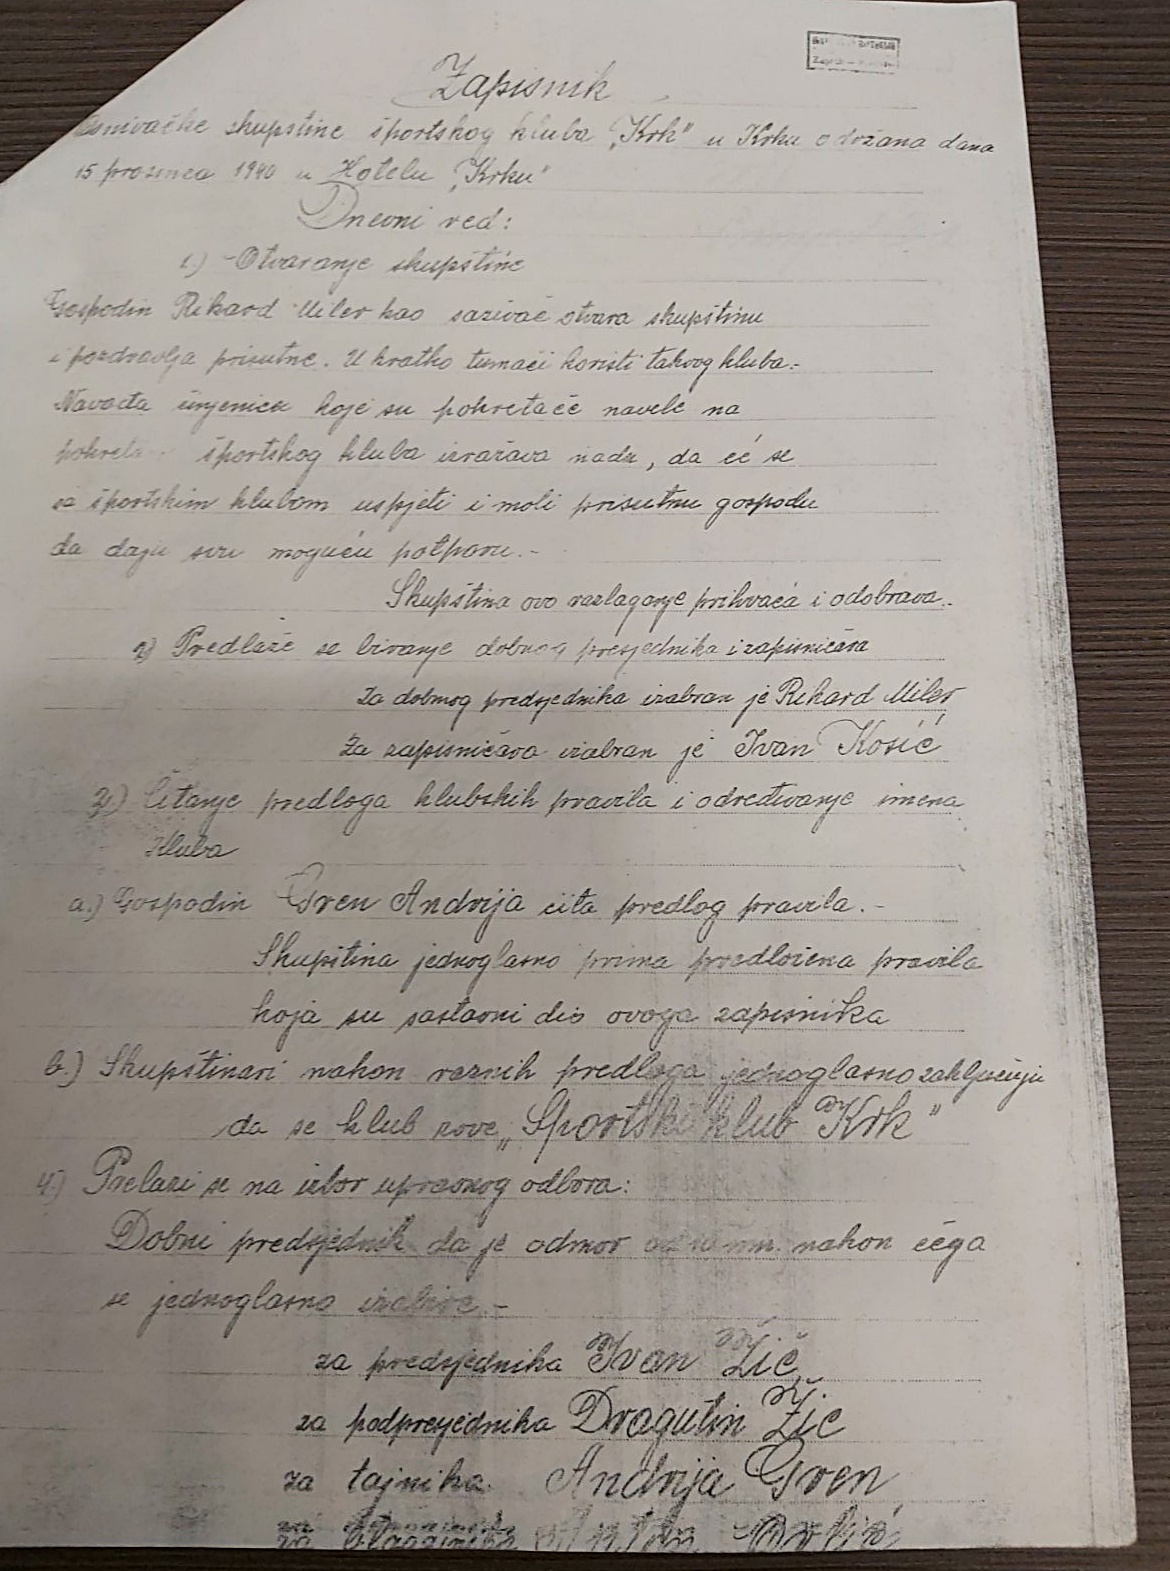 Zapisnik
Osnivačke skupštine športskog kluba "Krk" u Krku održana dana
15 prosinca 1940 u Hotelu "Krku"
Dnevni red:
1.) Otvaranje skupštine
Gospodin Rikard Miler kao sazivač otvara skupštinu
i pozdravlja prisutne. U kratko tumači koristi takvog kluba.-
Navađa činjenice koje su pokretače navele na
športskog kluba izražava nadu, da će se
sa športskim klubom uspjeti i moli prisutnu gospodu
da daju svu moguću potporu.-
Skupština ovo razlaganje prihvaća i odobrava.-
2) Predlaže se biranje dobnog presjednika i zapisničara
Za dobnog predsjednika izabran je Rikard Miler
Za zapisničara izabran je Ivan Kosić
3.) Čitanje predloga klubskih pravila i određivanje imena
Kluba
a.) Gospodin Gren Andrija čita predlog pravila.-
Skupština jednoglasno prima predložena pravila
koja su sastavni dio ovoga zapisnika
b.) Skupštinari nakon raznih predloga jednoglasno zaključuju
da se klub zove "Sportski klub Krk"
4.) Prelazi se na izbor upravnog odbora:
Dobni predsjednik da je odmor od 10 min. nakon čega
se jednoglasno
za predsjednika Ivan Žic
za podpresjednika Dragutin Žic
za tajnika Andrija Gren
za